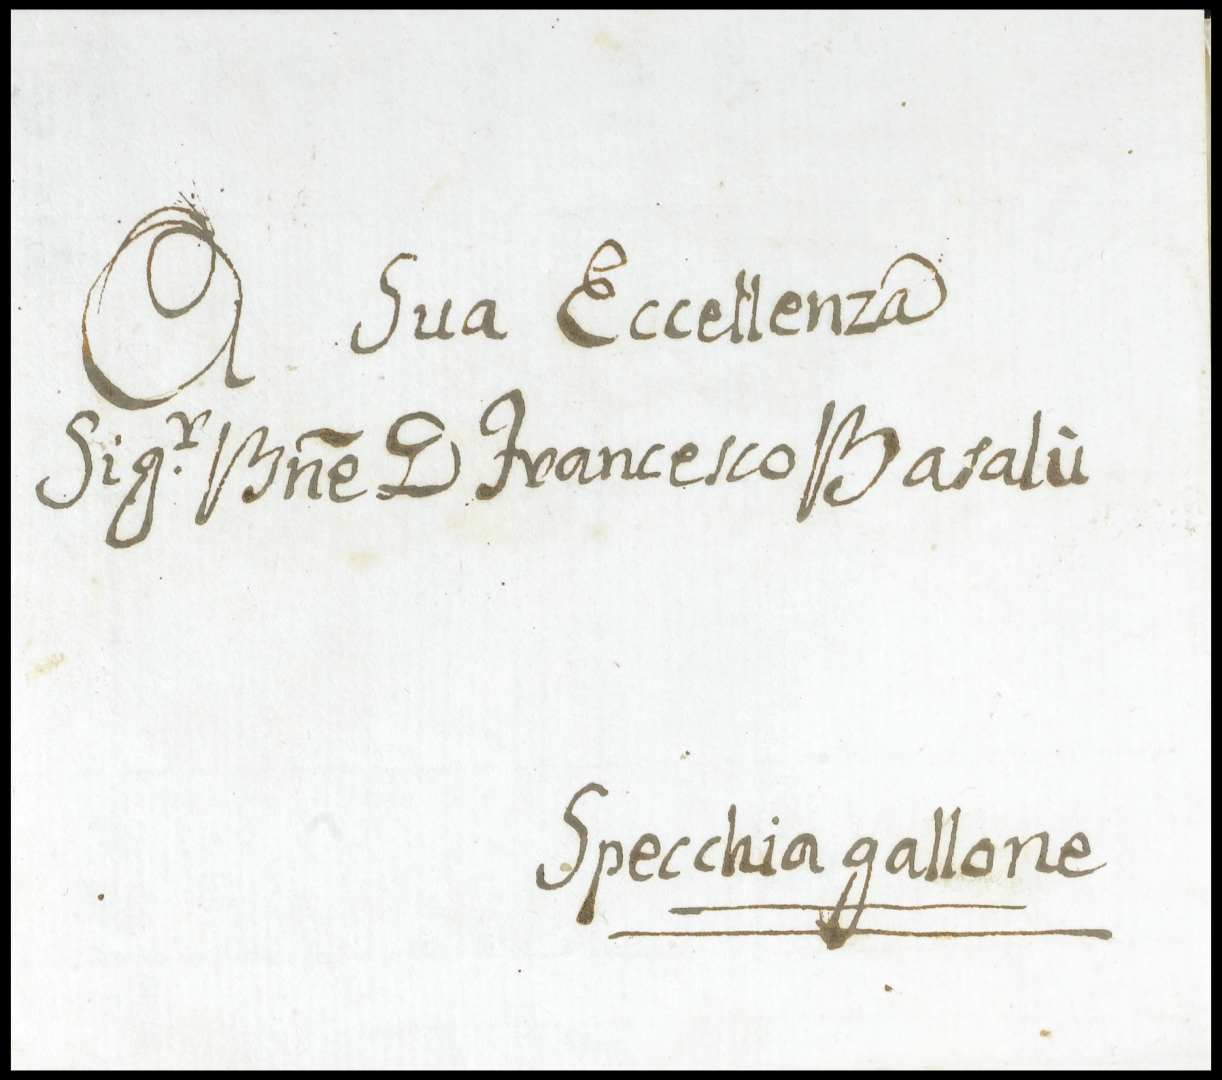 A Sua Eccellenza
Sig.r Bñe D Francesco Basalù
Specchia gallone